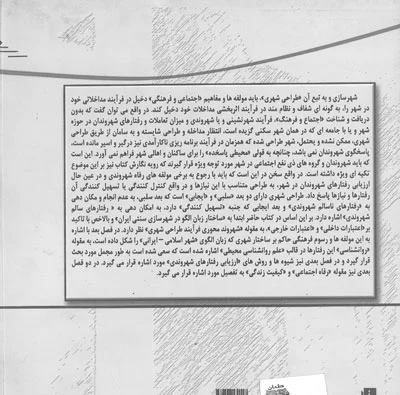 شهرسازی و به تبع آن «طراحی شهری»، باید مولفه ها و مفاهیم «اجتماعی و فرهنگی» دخیل در فرآیند مداخلاتی خود
در شهر را، به گونه ای شفاف و نظام مند در فرآیند اثربخشی مداخلات خود دخیل کند. در واقع می توان گفت که بدون
دریافت و شناخت «اجتماع و فرهنگ»، فرآیند شهرنشینی و یا شهروندی و میزان تعاملات و رفتارهای شهروندان در حوزه
شهر و یا جامعه ای که در همان شهر سکنی گزیده است، انتظار مداخله و طراحی شایسته و به سامان از طریق طراحی
شهری، ممکن نشده و یحتمل، شهر طراحی شده که همزمان در فرآیند برنامه ریزی ناکارآمدی نیز درگیر و اسیر مانده است،
پاسخگوی شهروندان نمی باشد، چنانچه به قولی «محیطی پاسخده» را برای ساکنان و اهالی شهر فراهم نمی آورد. این است
که باید شهروندان و گروه های ذی نفع اجتماعی در شهر مورد توجه ویژه قرار گیرند که رویه نگارش کتاب نیز بر این موضوع
تکیه ای ویژه داشته است. در واقع سخن در این است که باید با رجوع به برخی مولفه های رفاه شهروندی و در عین حال
ارزیابی رفتارهای شهروندان در شهر، به طراحی متناسب با این نیازها و در واقع کنترل کنندگی یا تسهیل کنندگی آن
رفتارها و نیازها پاسخ داد. طراحی شهری دارای دو بعد «سلبی» و «ایجابی» است که بعد سلبی، به عدم انجام و مکان دهی
به «رفتارهای ناسالم شهروندی» و بعد ایجابی که جنبه «تسهیل کنندگی» دارد، به امکان دهی به « رفتارهای سالم
شهروندی» اشاره دارد. بر این اساس در کتاب حاضر ابتدا به «ساختار زبان الگو در شهرسازی سنتی ایران» و بالاخص با تاکید
بر «اعتبارات داخلی» و «اعتبارات خارجی»، به مقوله «شهروند محوری فرآیند طراحی شهری» نظر دارد. در فصل بعد با اشاره
به این مولفه ها و رسوم فرهنگی حاکم بر ساختار شهری که زبان الگوی «شهر اسلامی – ایرانی» را شکل داده است، به مقوله
«روانشناسی» این رفتارها در قالب «علم روانشناسی محیطی» اشاره شده است که سعی شده است به طور مجمل مورد بحث
قرار گیرد و در فصل بعدی نیز شیوه ها و روش های «ارزیابی رفتارهای شهروندی» مورد اشاره قرار می گیرد. در دو فصل
بعدی نیز مقوله «رفاه اجتماعی» و «کیفیت زندگی» به تفصیل مورد اشاره قرار می گیرد.